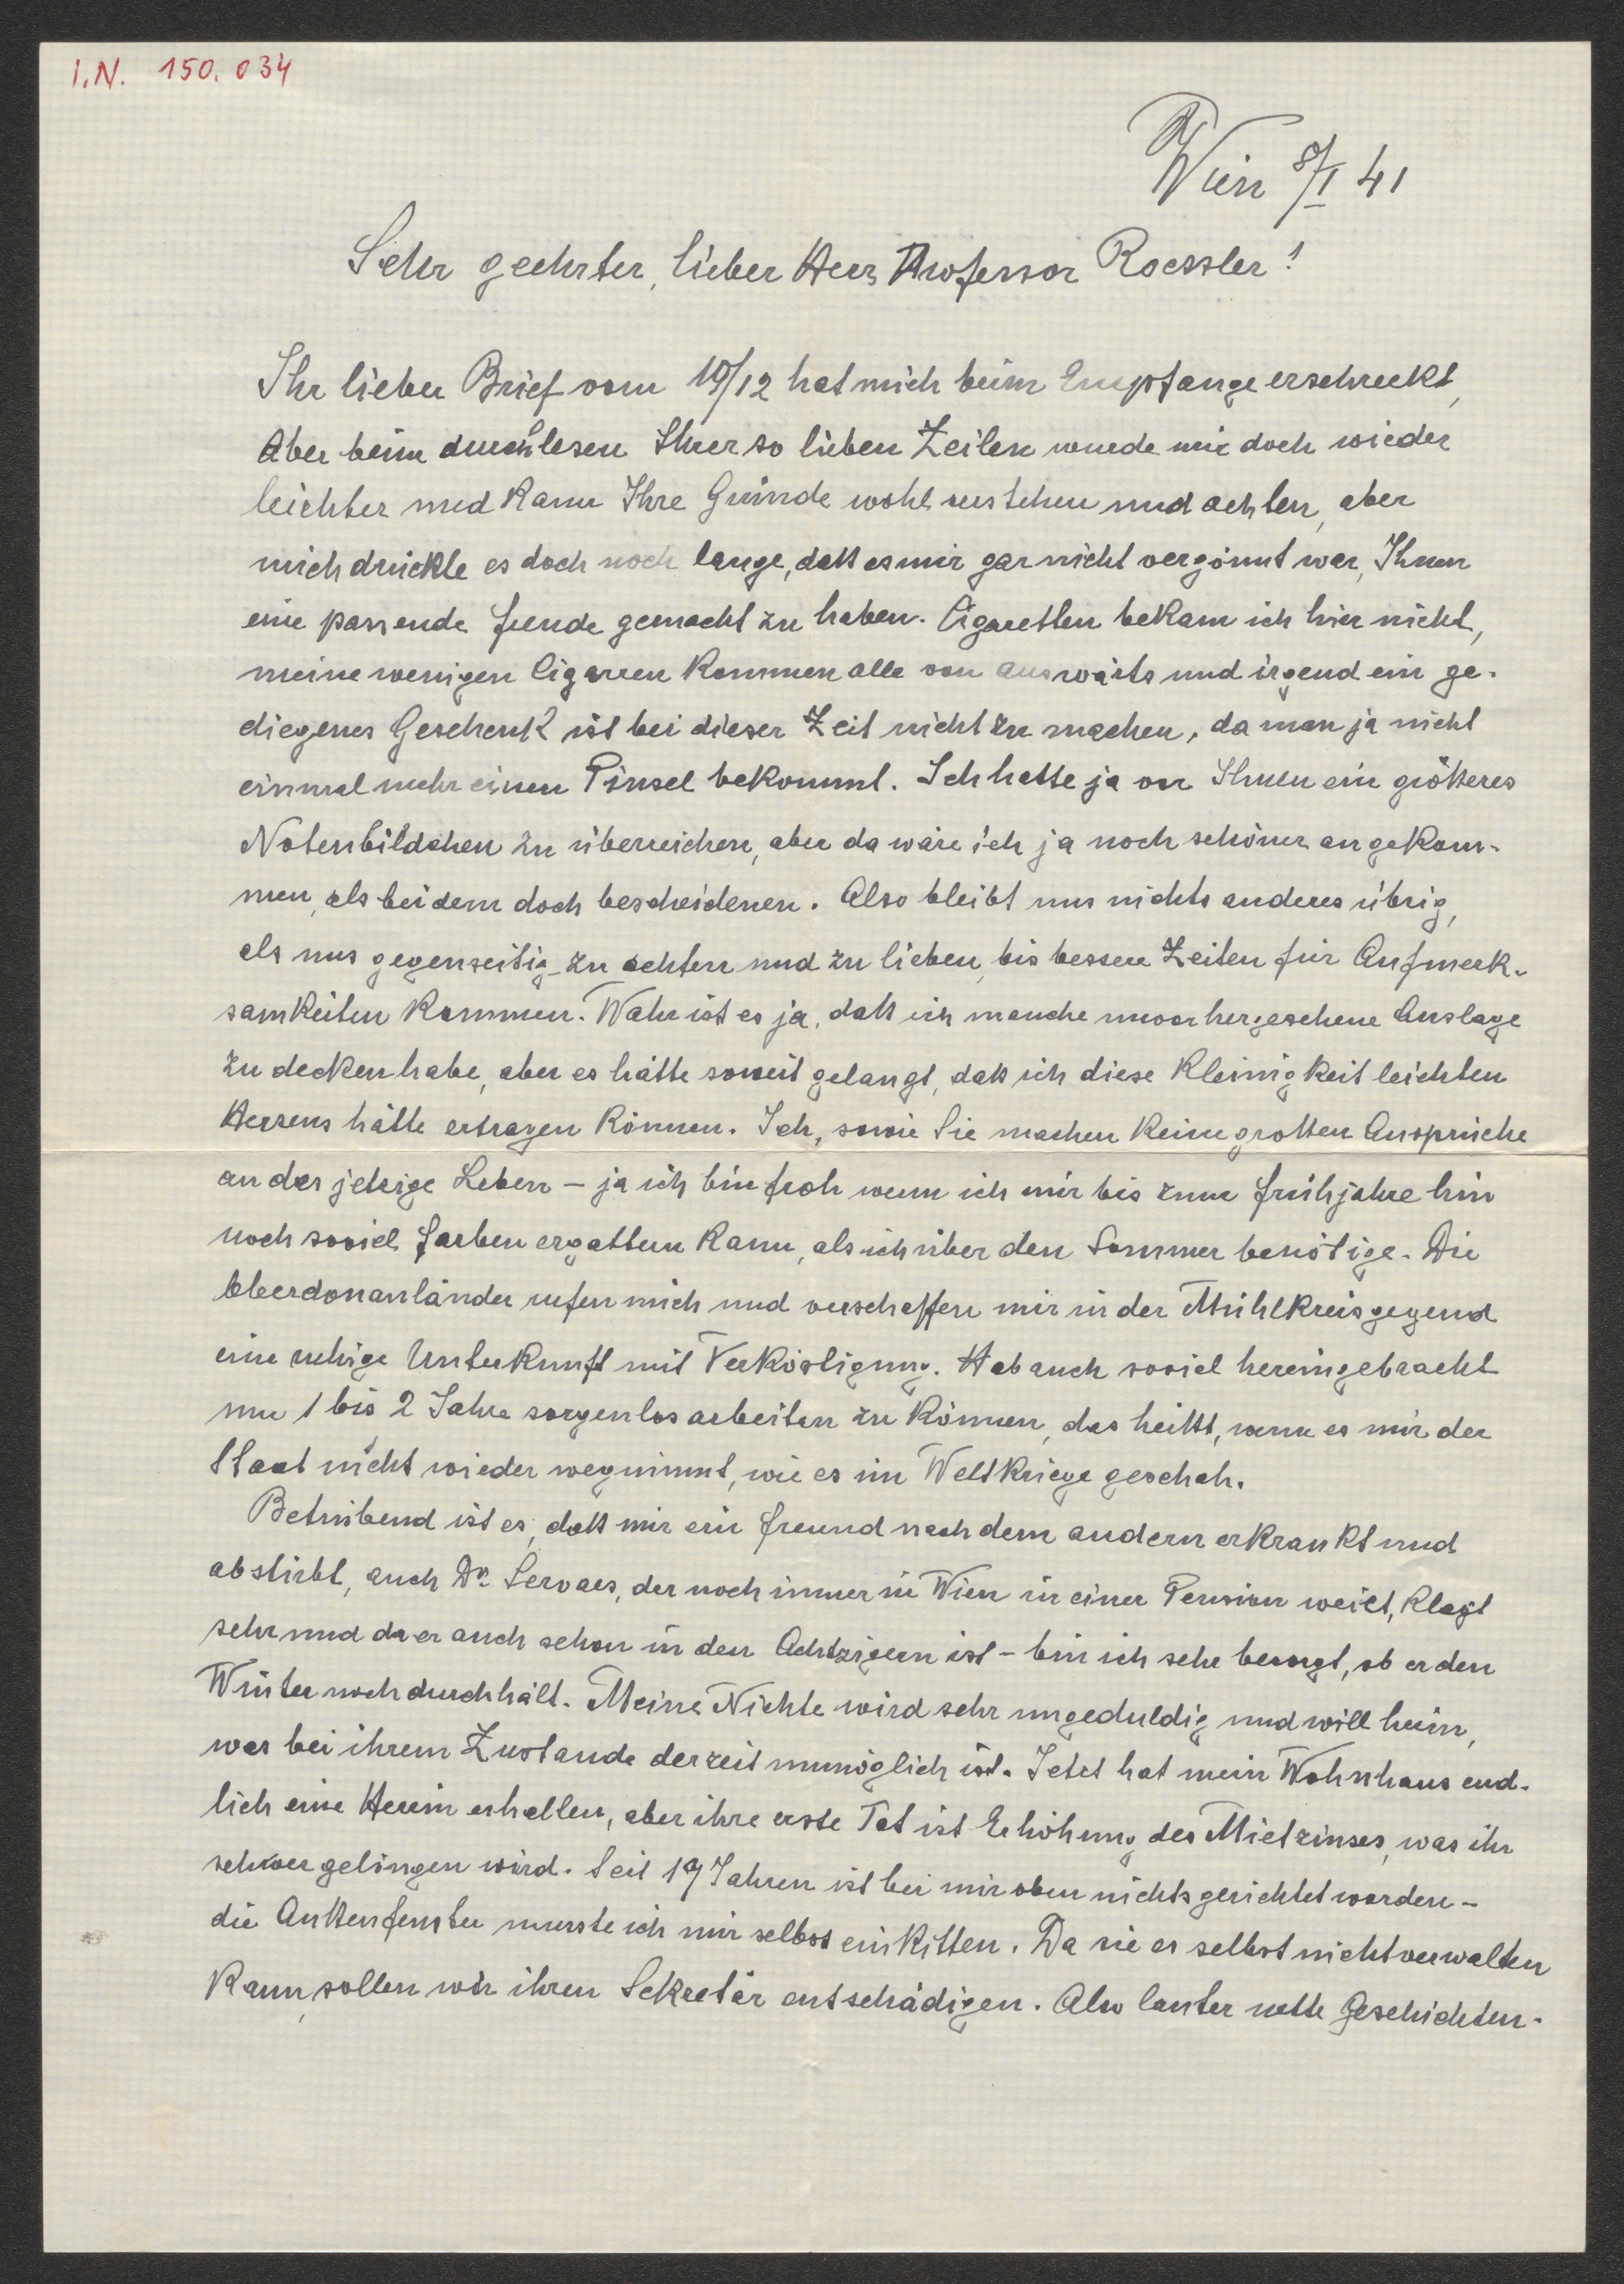 I.N. 150.034
Wien 8/I 41
Sehr geehrter, lieber Herr Professor Roessler!
Ihr lieber Brief vom 19/12 hat mich beim Empfange erschreckt,
Aber beim durchlesen Ihrer so lieben Zeilen wurde mir doch wieder
leichter und kann Ihre Gründe wohl verstehen und achten, aber
mich drückte es doch noch lange, daß es mir gar nicht vergönnt war, Ihnen
eine passende Freude gemacht zu haben. Cigaretten bekam ich hier nicht,
meine wenigen Cigarren kommen alle von auswärts und irgend ein ge-
diegenes Geschenk ist bei dieser Zeit nicht zu machen, da man ja nicht
einmal mehr einen Pinsel bekommt. Ich hatte ja vor Ihnen ein größeres
Notenbildchen zu überreichen, aber da wäre ich ja noch schöner angekom-
men, als bei dem doch bescheidenen. Also bleibt uns nichts anderes übrig,
als uns gegenseitig zu achten und zu lieben, bis bessere Zeiten für Aufmerk-
samkeiten kommen. Wahr ist es ja, daß ich manche unvorhergesehene Auslage
zu decken habe, aber es hätte soweit gelangt, daß ich diese Kleinigkeit leichten
Herzens hätte ertragen können. Ich, sowie Sie machen keine großen Ansprüche
an das jetzige Leben – ja ich bin froh wenn ich mir bis zum Frühjahre hin
noch soviel Farben ergattern kann, als ich über den Sommer benötige. Die
Oberdonauländer rufen mich und verschaffen mir in der Mühlkreisgegend
eine ruhige Unterkunft mit Verköstigung. Hab auch soviel hereingebracht
um 1 bis 2 Jahre sorgenlos arbeiten zu können, das heißt, wenn es mir der
Staat nicht wieder wegnimmt, wie es im Weltkriege geschah.
Betrübend ist es, daß mir ein Freund nach dem andern erkrankt und
abstirbt, auch Dr. Servaes, der noch immer in Wien in einer Pension weilt, klagt
sehr und da er auch schon in den Achtzigern ist – bin ich sehr besorgt, ob er den
Winter noch durchhält. Meine Nichte wird sehr ungeduldig und will heim,
was bei ihrem Zustande derzeit unmöglich ist. Jetzt hat mein Wohnhaus end-
lich eine Herrin erhalten, aber ihre erste Tat ist Erhöhung des Mietzinses, was ihr
schwer gelingen wird. Seit 19 Jahren ist bei mir oben nichts gerichtet worden –
die Außenfenster musste ich mir selbst einkitten. Da sie es selbst nicht verwalten
kann, sollen wir ihren Sekretär entschädigen. Also lauter nette Geschichten.